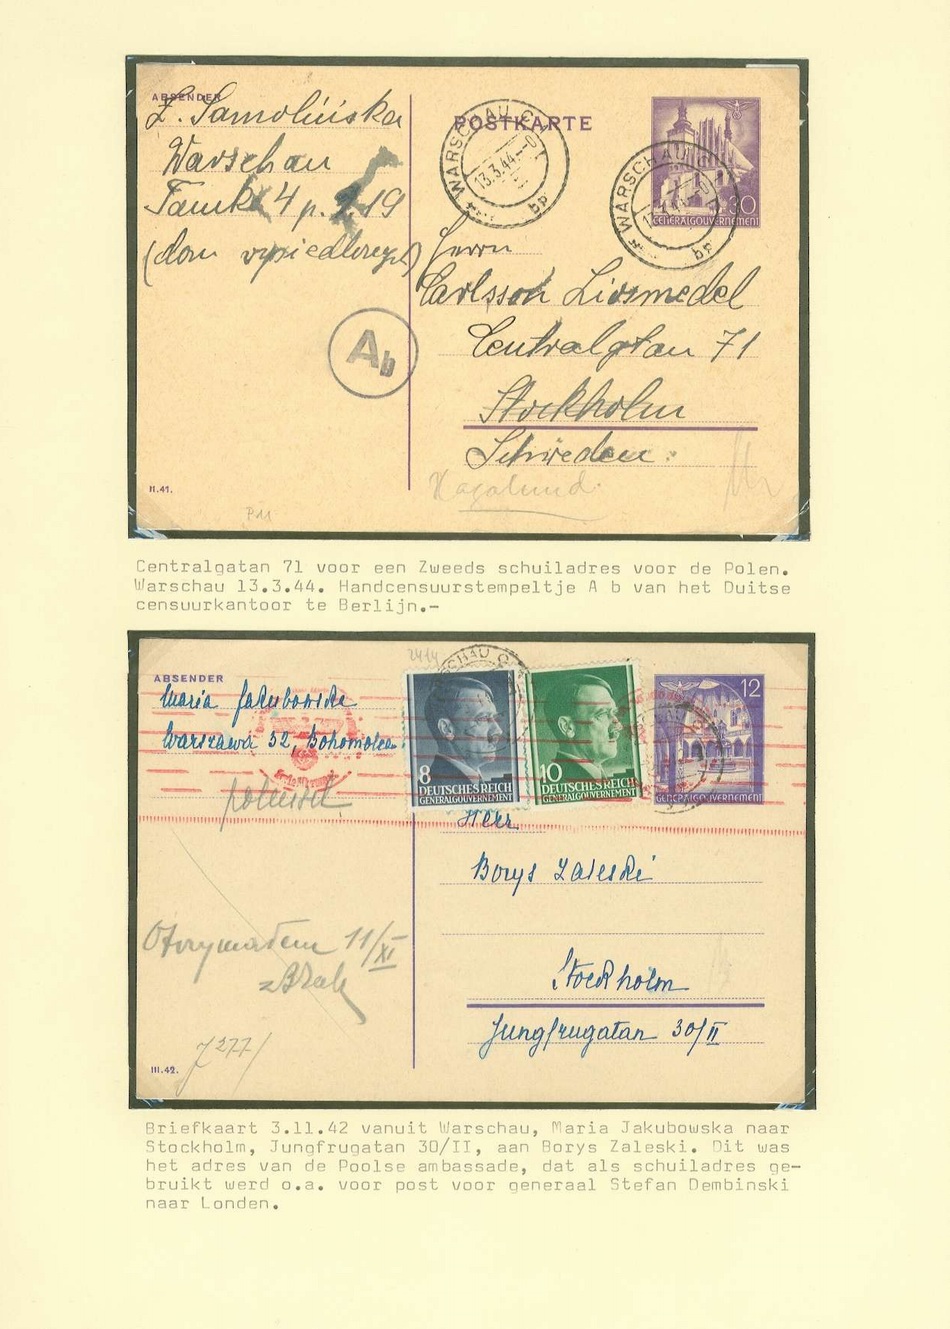 ABSENDER
Warschau
(dom
POSTKARTE
WARSCHAU C
13.3.44.--0
bp
WARSCHAU
bp
30
GENERALGOUVERNEMENT
Herrn
Carlsson Livsmedel
Centralgatan 71
Stockholm
Schweden
Hagalund.
Ab
II.41.
P11
Centralgatan 71 voor een Zweeds schuiladres voor de Polen.
Warschau 13.3.44. Handcensuurstempeltje A b van het Duitse
censuurkantoor te Berlijn.-
2414
ABSENDER
Maria Jakubowska
Warszawa 32, Bohomolca
8
DEUTSCHES REICH
GENERALGOUVERNEMENT
10
DEUTSCHES REICH
GENERALGOUVERNEMENT
12
GENERALGOUVERNEMENT
Herr
Borys Zaleski
Stockholm
Jungfrugatan 30/II
Otrzymałem 11/XI
III.42.
Briefkaart 3.11.42 vanuit Warschau, Maria Jakubowska naar
Stockholm, Jungfrugatan 30/II, aan Borys Zaleski. Dit was
het adres van de Poolse ambassade, dat als schuiladres ge-
bruikt werd o.a. voor post voor generaal Stefan Dembinski
naar Londen.